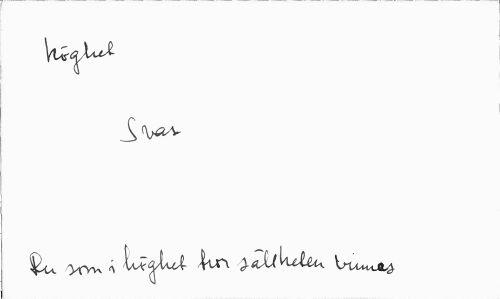 höghet
Svar
Du som i höghet tror sällheten vinnas